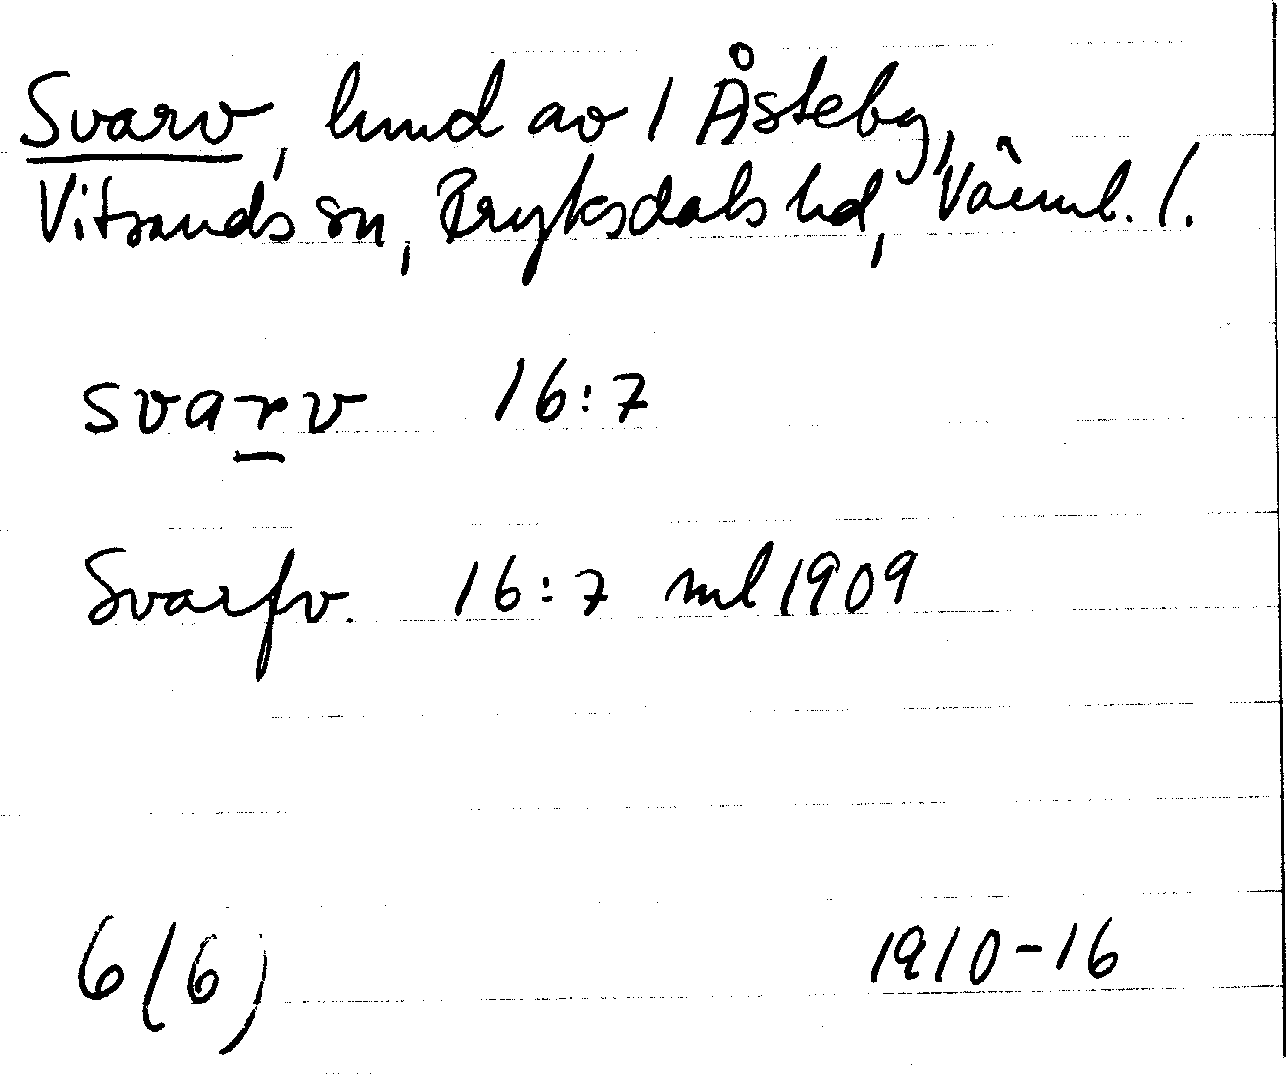 Svarv, hmd av 1 Åsteby,
Vitsands sn, Fryksdals hd, Värml. l.
svarv 16:7
Svarfv. 16:7 ml 1909
6 (6) 1910-16